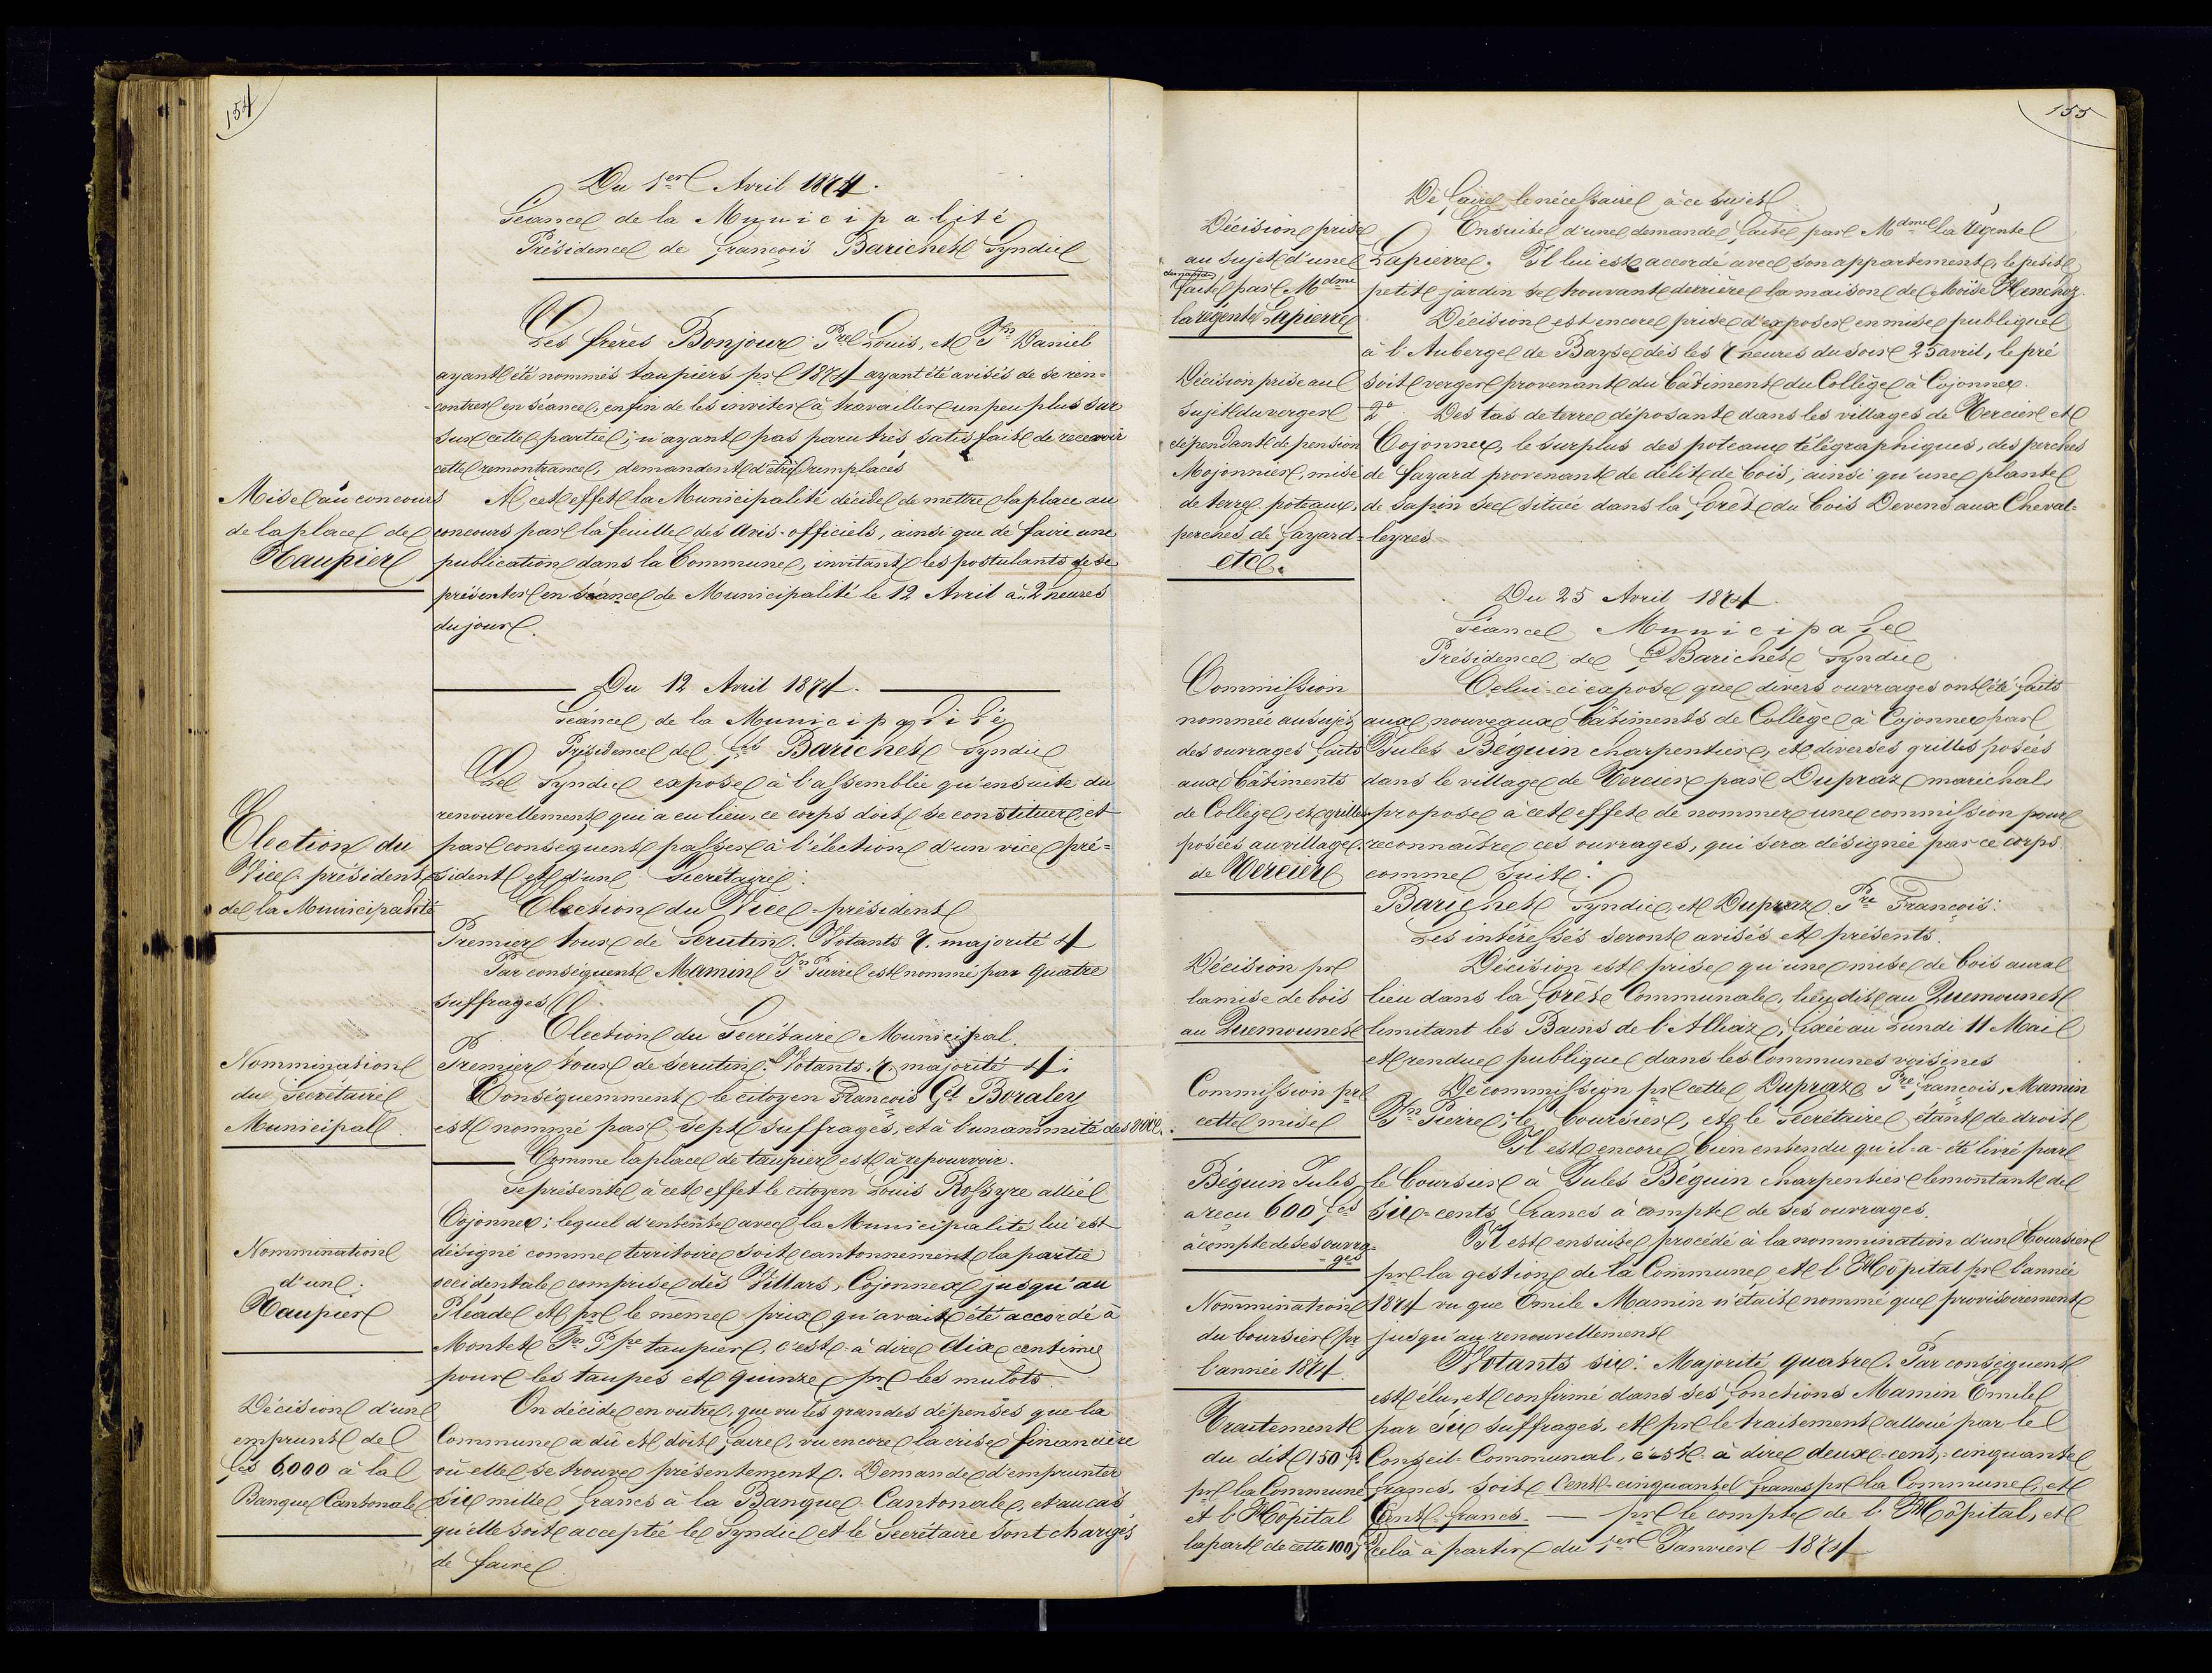 154
Du 1er Avril 1874.
Séance de la Municipalité
Présidence de François Barichet Syndic
Les frères Bonjour Pre Louis, et Jn Daniel
ayant été nommés taupiers pr 1874 ayant été avisés de se ren=
=contrer en séance, enfin de les inviter à travailler un peu plus sur
sur cette partie; n'ayant pas paru très satisfait de recevoir
cette remontrance, demandent d'être remplacés
Mise au concours
de la place de
Taupier
A cet effet la Municipalité décide de mettre la place au
concours par la feuille des Avis-officiels, ainsi que de faire une
publication dans la Commune, invitant les postulants de se
présenter en séance de Municipalité le 12 Avril à 2 heures
du jour.
Du 12 Avril 1874.
Séance de la Municipalité
Présidence de fçs Barichet Syndic
Le Syndic expose à l'assemblée qu'ensuite du
renouvellement qui a eu lieu, ce corps doit se constituer, et
par conséquent passer à l'élection d'un vice pré=
sident et d'un secrétaire:
Election du
Vice-président
de la Municipalité
Election du Vice-président
Premier tour de Scrutin. Votants 7. majorité 4
Par conséquent Mamin Jn Pierre est nommé par quatre
suffrages
Election du Secrétaire Municipal.
Nommination
du Secrétaire
Municipal.
Premier tour de scrutin. Votants. 7. majorité 4:
Conséquemment le citoyen François Gd Boraley
est nommé par sept suffrages, et à l'unanimité des voix.
Comme la place de taupier est à repourvoir.
Se présente à cet effet le citoyen Louis Rossyre allié
Cojonnex; lequel d'entente avec la Municipalité lui est
Nommination
d'un
Taupier
désigné comme territoire soit cantonnement la partie
occidentale comprise dès Villars, Cojonnex jusqu'au
Pléiade et pr le même prix qu'avait été accordé à
Montet Jn Ppe taupier, c'est-à dire dix centimes
pour les taupes et quinze pr les mulots.
Décision d'un
emprunt de
fcs 6,000 à la
Banque Cantonale
On décide en outre, que vu les grandes dépenses que la
Commune a dû et doit faire, vu encore la crise financière
où elle se trouve présentement. Demande d'emprunter
six mille francs à la Banque-Cantonale, et au cas
qu'elle soit acceptée le Syndic et le Secrétaire sont chargés
de faire
155
De faire le nécessaire à ce sujet
Décision prise
au sujet d'une
demande
faite par Mdme
la régente Lapierre
Ensuite d'une demande faite par Mdme la régente
Lapierre. Il lui est accordé avec son appartement, le petit
petit jardin se trouvant derrière la maison de Moïse Henchoz.
Décision est encore prise d'exposer en mise publique
à l'Auberge de Bayse dès les 7 heures du soir 25 avril, le pré
Décision prise au
sujet du verger
dépendant de pension
Mojonnier, mise
de terre poteaux,
perches de fayard
etc.
soit verger provenant du bâtiment du Collège à Cojonnex.
2° Des tas de terre déposant dans les villages de Tercier et
Cojonnex, le surplus des poteaux télégraphiques, des perches
de fayard provenant de délit de bois; ainsi qu'une plante
de sapin sec située dans la forêt du bois Devens aux Cheval=
=leyres
Du 25 Avril 1874.
Séance Municipale
Présidence de fçs Barichet Syndic
Commission
nommée au sujet
des ouvrages faits
aux bâtiments
de Collège, et grilles
posées au village
de Tercier
Celui-ci expose que divers ouvrages ont été faits
aux nouveaux bâtiments de Collège à Cojonnex par
Jules Béguin charpentier, et diverses grilles posées
dans le village de Tercier par Dupraz maréchal
propose à cet effet de nommer une commission pour
reconnaître ces ouvrages, qui sera désignée par ce corps
comme suit:
Barichet Syndic, et Dupraz Pre François:
Les intéressés seront avisés et présents.
Décision pr
la mise de bois
au Quemounet
Décision est prise qu'une mise de bois aura
lieu dans la forêt Communale, lieu dit au Quemounet
limitant les Bains de l'Alliaz, fixée au Lundi 11 Mai
et rendue publique dans les Communes voisines
Commission pr
cette mise
De commission pr cette Dupraz Pre François, Mamin
Jn Pierre; le boursier, et le Secrétaire étant de droit
Il est encore bien entendu qu'il-a-été livré par
Béguin Jules,
a reçu 600 fcs
à compte de ses ouvra=
=ges
le boursier à Jules Béguin charpentier le montant de
six-cents francs à compte de ses ouvrages.
Il est ensuite procédé à la nommination d'un boursier
pr la gestion de la Commune et l'Hôpital pr l'année
Nommination
du boursier pr
l'année 1874.
1874 vu que Emile Mamin n'était nommé que provisoirement
jusqu'au renouvellement
Votants six: Majorité quatre. Par conséquent
est élu, et confirmé dans ses fonctions Mamin Emile
Traitement
du dit 150 fs
pr la Commune
et l'Hôpital
la part de cette 100 fs
par six suffrages, et pr le traitement alloué par le
Conseil-Communal, c'est-à dire deux-cent-cinquante
francs, soit cent-cinquante francs pr la Commune, et
Cent-francs. — pr le compte de l'Hôpital, et
celà à partir du 1er Janvier 1874